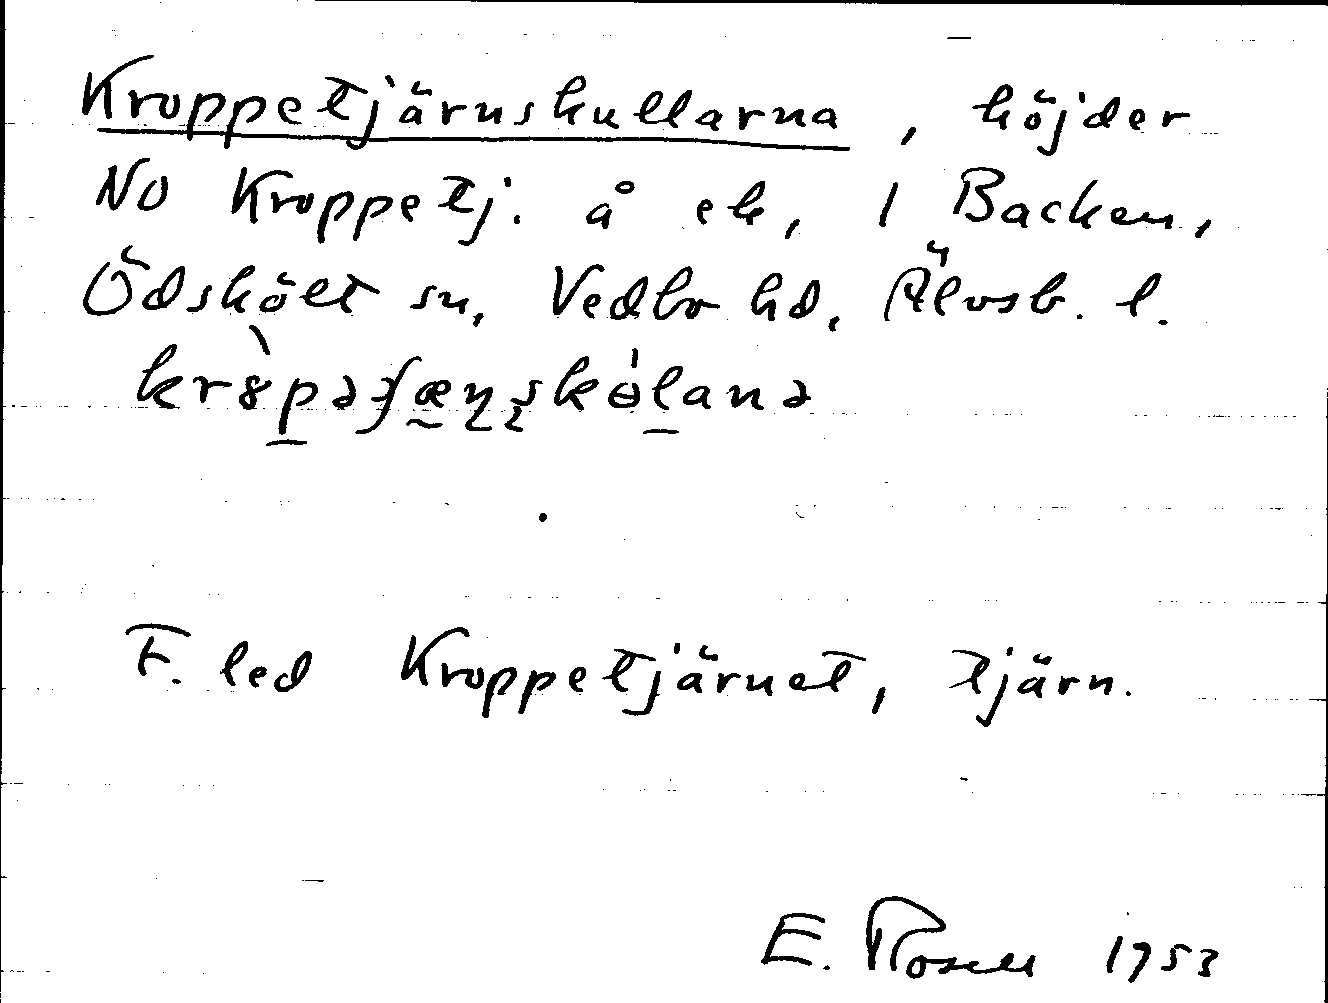 Kroppetjärnskullarna, höjder
NO Kroppetj. å ek, 1 Backen,
Ödskölt sn, Vedbo hd, Älvsb. l.
F. led Kroppetjärnet, tjärn.
E. Rosell 1953